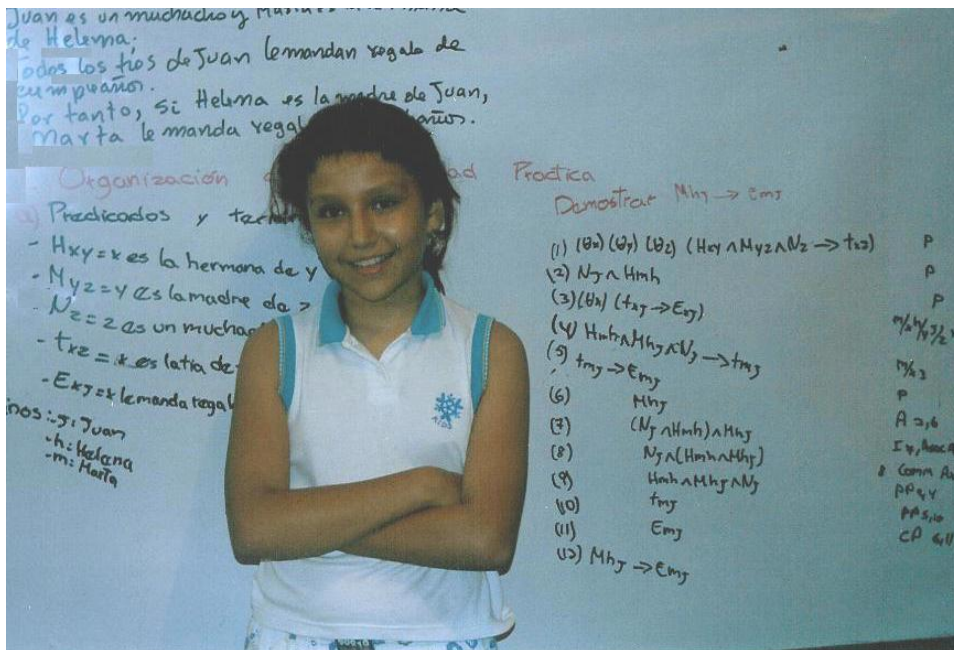 Juan es un muchacho y
de Helena;
Todos los tíos de Juan le mandan regalo de
cumpleaños.
Por tanto, si Helena es la madre de Juan,
Marta le manda regal años.
Organización ad Practica
a) Predicados y
- Hxy = x es la hermana de y
- Myz = y es la madre de z
- Nz = z es un muchac
- txz = x es la tía de
- Exj = x le manda regal
inos: - j: Juan
- h: Helena
- m: Marta
Demostrar Mhj → Emj
(1) (∀x) (∀y) (∀z) (Hxy ∧ Myz ∧ Nz → txz) P
(2) Nj ∧ Hmh P
(3) (∀x) (txj → Exj) P
(4) Hmh ∧ Mhj ∧ Nj → tmj
(5) tmj → Emj
(6) Mhj P
(7) (Nj ∧ Hmh) ∧ Mhj A 2,6
(8) Nj ∧ (Hmh ∧ Mhj)
(9) Hmh ∧ Mhj ∧ Nj
(10) tmj
(11) Emj
(12) Mhj → Emj